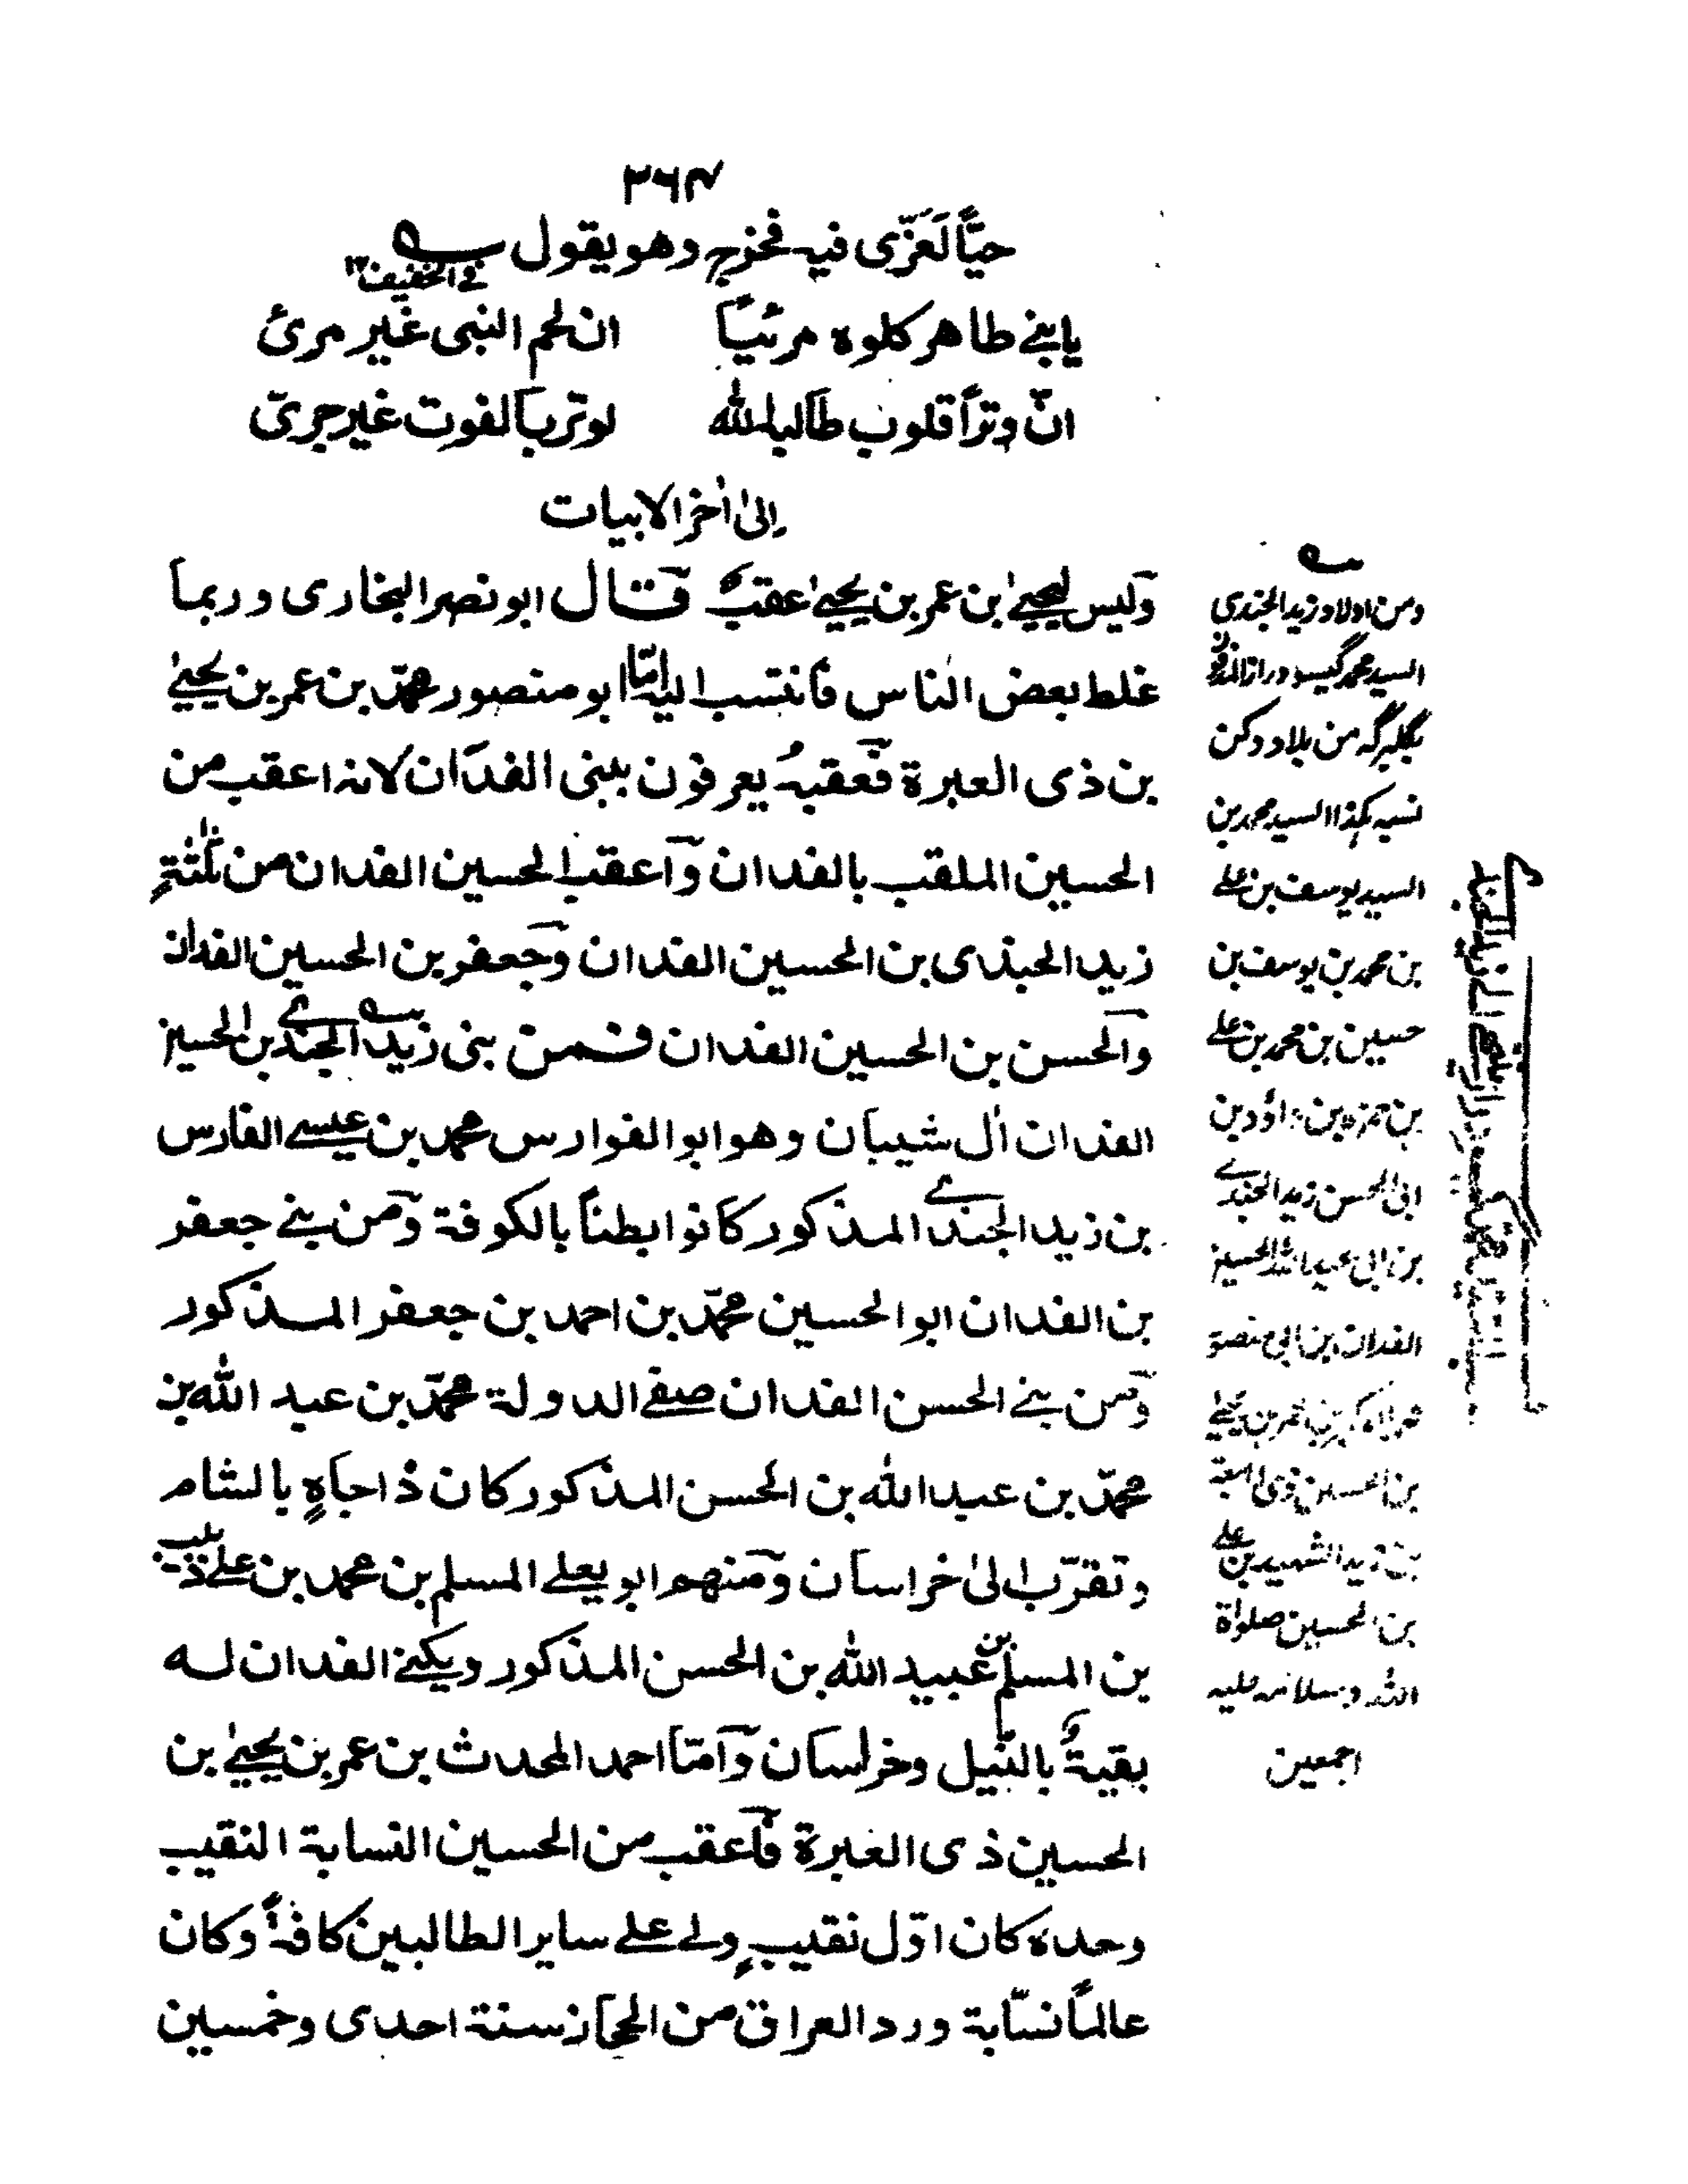 ٣٦٧
حيًّا لَعَزّى فيه فخرج وهو يقول
فے الخفيف ١٢
يا بنے طاهر كلوه مرئيًا ان لحم النبى غير مرئ
انّ وترًا قلوب طالبه الله لوتر بالفوت غير جرىّ
إلىٰ اٰخر الابيات
وليس ليحيےٰ بن عمر بن يحيےٰ عقبٌ قال ابو نصر البخارى وربما
غلط بعض الناس فانتسب اليه امّا ابو منصور محمّد بن عمر بن يحيےٰ
بن ذى العبرة فعقبهُ يعرفون ببنى الفدان لانه اعقب من
الحسين الملقب بالفدان واعقب الحسين الفدان من ثلٰثةٍ
زيد الجندى بن الحسين الفدان وجعفر بن الحسين الفدان
والحسن بن الحسين الفدان فمن بنى زيد الجندے بن الحسين
الفدان اٰل شيبان وهو ابو الفوارس محمد بن عيسے الفارس
بن زيد الجندے المذكور كانوا بطنًا بالكوفة ومن بنے جعفر
بن الفدان ابو الحسين محمّد بن احمد بن جعفر المذكور
ومن بنے الحسن الفدان صفے الدولة محمّد بن عبد الله بن
محمّد بن عبيد الله بن الحسن المذكور كان ذا جاهٍ بالشام
وتقرّب الىٰ خراسان ومنهم ابو يعلے المسلم بن محمد بن علے ذنيب
بن المسلم بن عبيد الله بن الحسن المذكور ويكنے الفدان له
بقيةٌ بالنّيل وخراسان وامّا احمد المحدث بن عمر بن يحيےٰ بن
الحسين ذى العبرة فاعقب من الحسين النسابة النقيب
وحده كان اوّل نقيبٍ ولے علے ساير الطالبين كافةً وكان
عالمًا نسّابة ورد العراق من الحجاز سنة احدى وخمسين
ومن اولاد زيد الجندى
السيد محمد گيسو دراز المدفون
بگلبرگه من بلاد دكن
نسبه هكذا السيد محمد بن
السيد يوسف بن علے
بن محمد بن يوسف بن
حسين بن محمد بن علے
بن حمزه بن داؤد بن
ابى الحسن زيد الجندے
بن ابى عبد الله الحسين
الفدان بن ابى منصور
محمد الاكبر بن عمر بن يحيے
بن الحسين ذى العبرة
بن زيد الشهيد بن علے
بن الحسين صلواة
الله وسلامه عليه
اجمعين